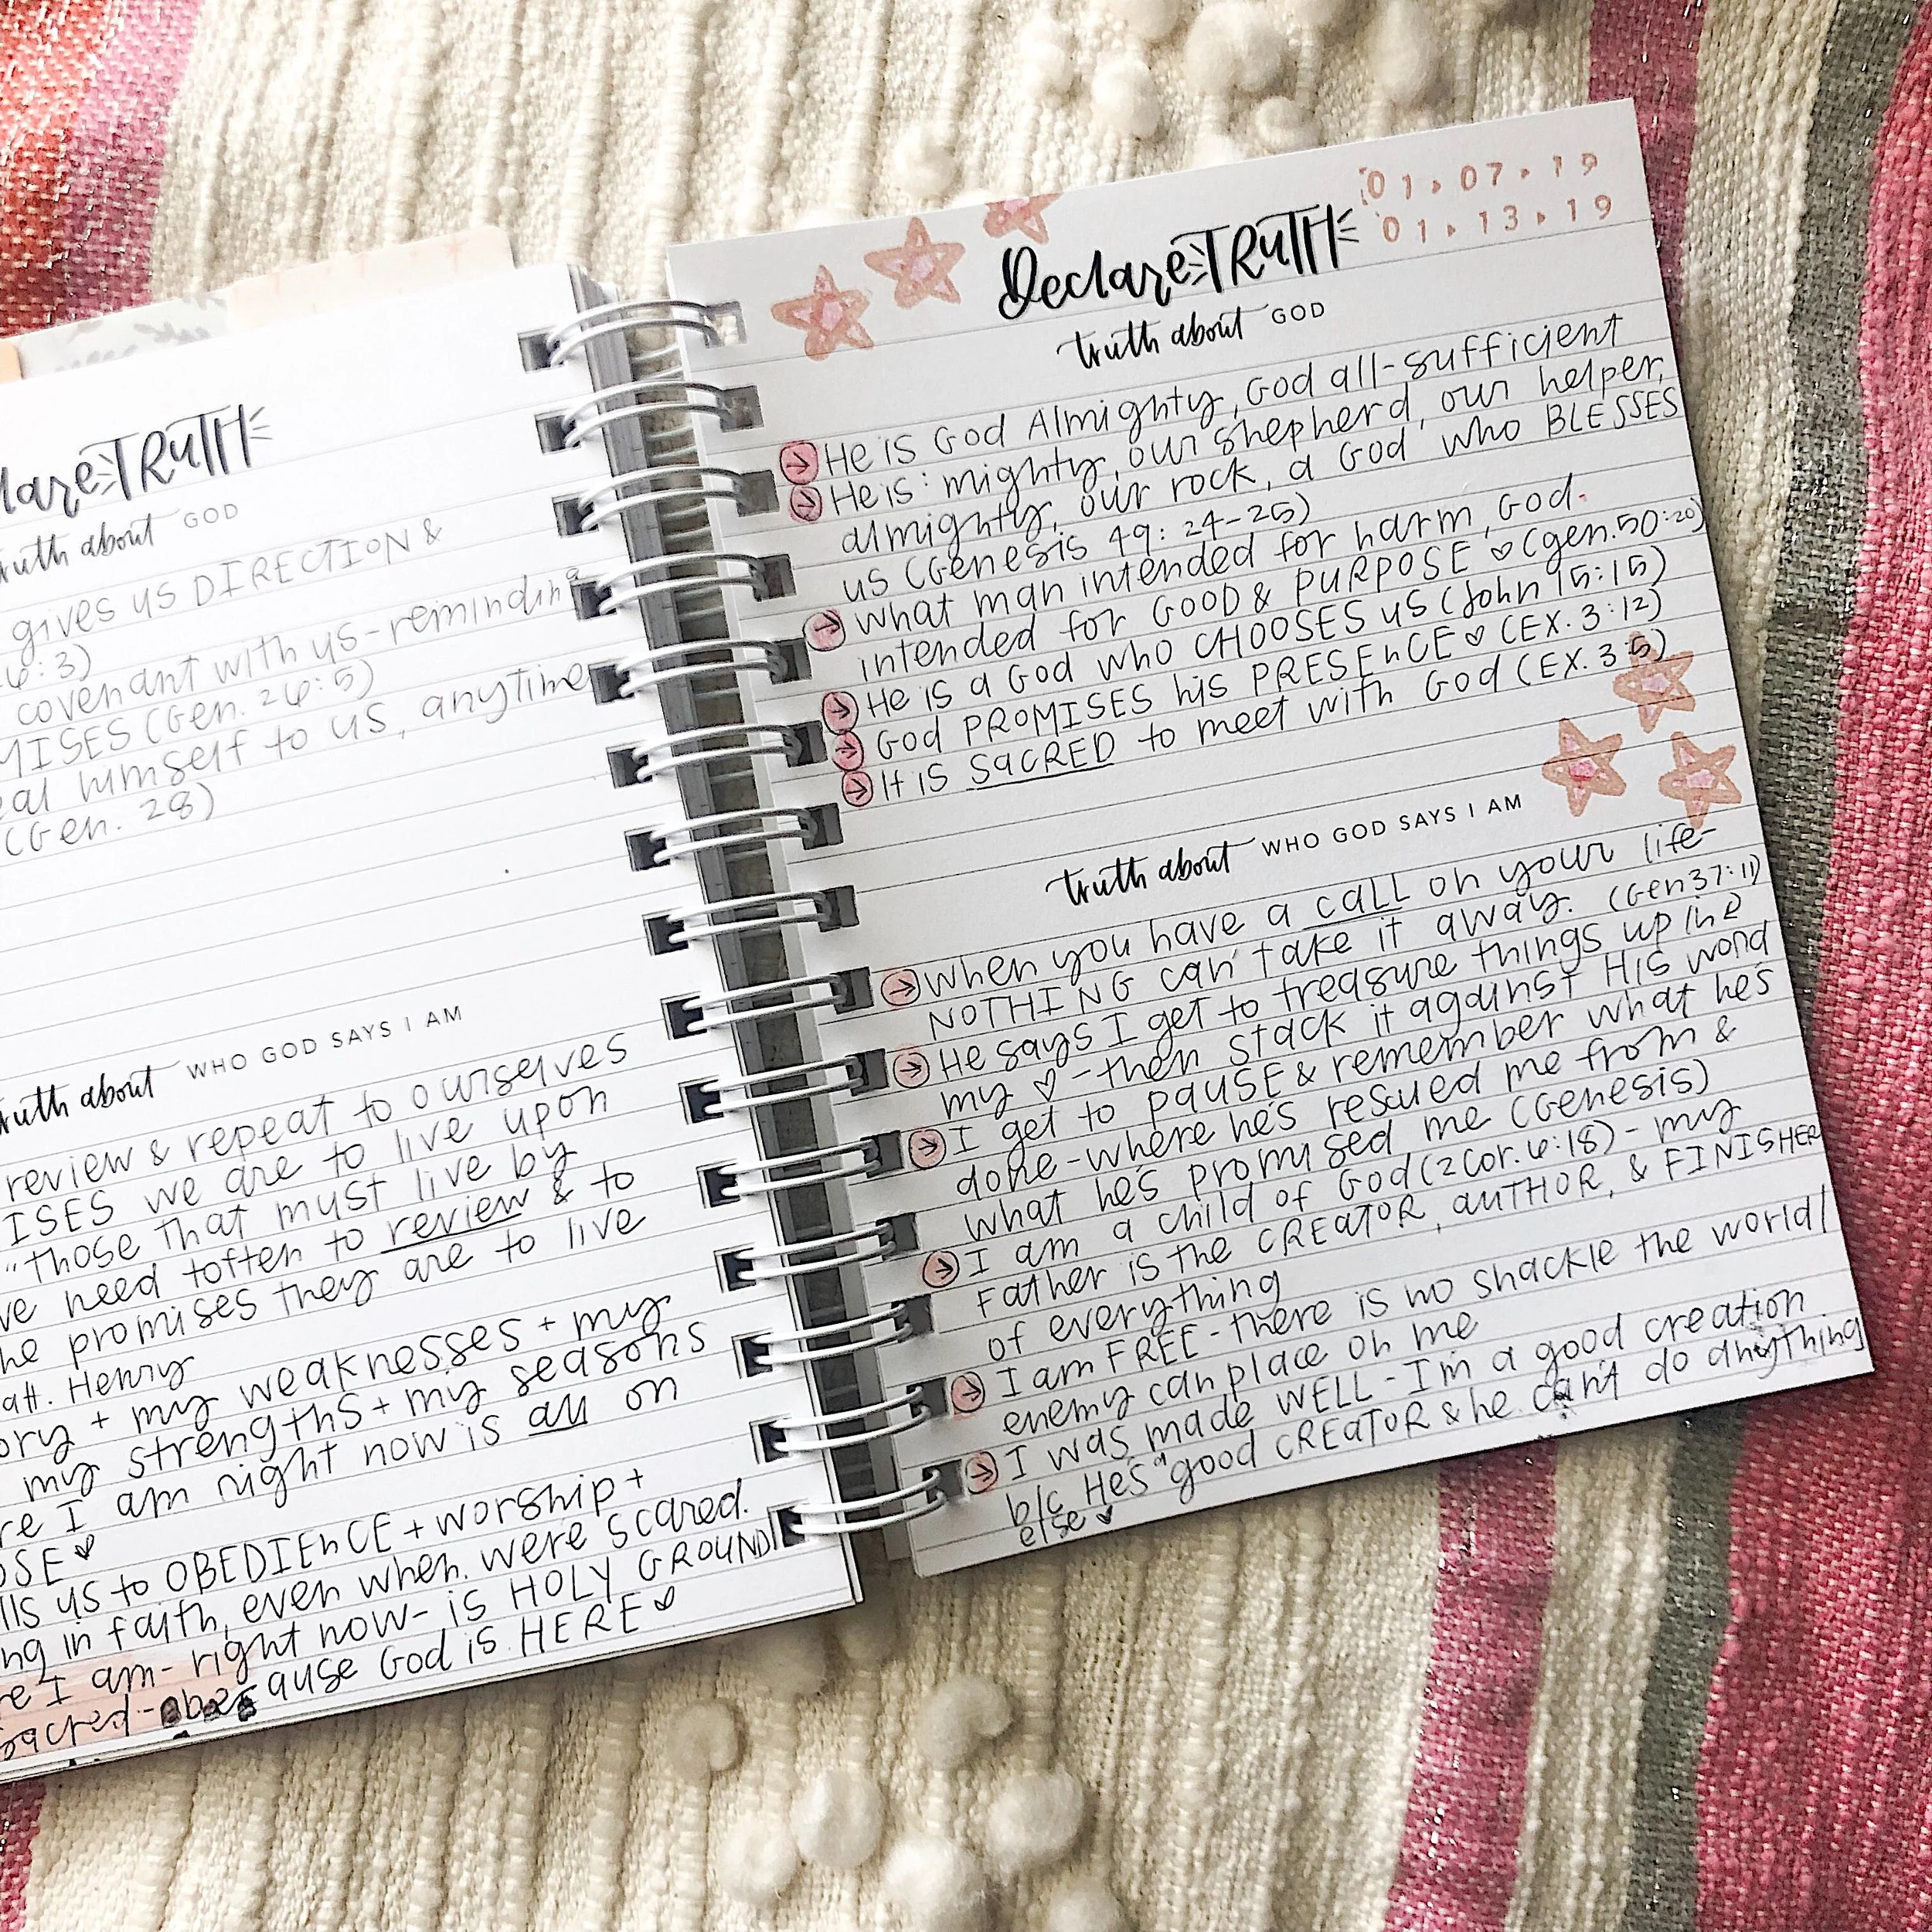 TRUTH
truth about GOD
gives us DIRECTION &
covenant with us-reminding
MISES (Gen. 26:5)
himself to us, anytime
(Gen. 28)
truth about WHO GOD SAYS I AM
review & repeat to ourselves
ISES we are to live upon
"those that must live by
need toften to review & to
promises they are to live
Henry
+ my weaknesses + my
my strengths + my seasons
I am right now is all on
us to OBEDIENCE + worship +
in faith, even when were scared.
I am - right now - is HOLY GROUND
sacred - ause God is HERE ♥
Declare TRUTH
01.07.19
01.13.19
truth about GOD
→ He is God Almighty, God all-sufficient
→ He is: mighty, our shepherd, our helper,
almighty, our rock, a God who BLESSES
us (Genesis 49:24-25)
→ What man intended for harm, God
intended for GOOD & PURPOSE ♡ (gen. 50:20)
→ He is a God who CHOOSES us (John 15:15)
→ God PROMISES his PRESEnCE ♡ (EX. 3:12)
→ It is SaCRED to meet with God (EX. 3:5)
truth about WHO GOD SAYS I AM
→ When you have a call on your life-
NOTHING can take it away. (Gen 37:11)
→ He says I get to treasure things up in
my ♡ - then stack it against His word
→ I get to pause & remember what he's
done - where he's rescued me from &
what he's promised me (Genesis)
→ I am a child of God (2 Cor. 6:18) - my
Father is the CREATOR, AUTHOR, & FINISHER
of everything
→ I am FREE - there is no shackle the world/
enemy can place on me
→ I was made WELL - I'm a good creation
b/c He's a good CREATOR & he can't do anything
else ♥